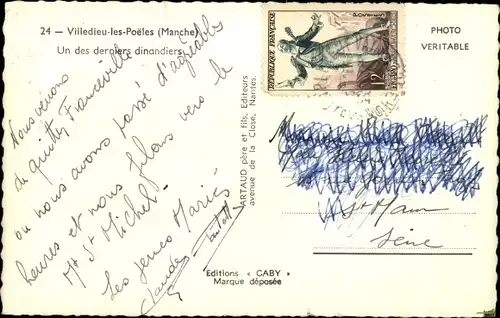 24 — Villedieu-les-Poëles (Manche)
Un des derniers dinandiers
Nous venons
de quitter Franceville
ou nous avons passé d'agréables
heures et nous filons vers le
Mt St Michel.
Les jeunes Mariés
Claude
ARTAUD père et fils, Editeurs
avenue de la Close, Nantes
Editions « GABY »
Marque déposée
REPUBLIQUE FRANÇAISE
POSTES
12F
PHOTO
VERITABLE
St Maur
Seine